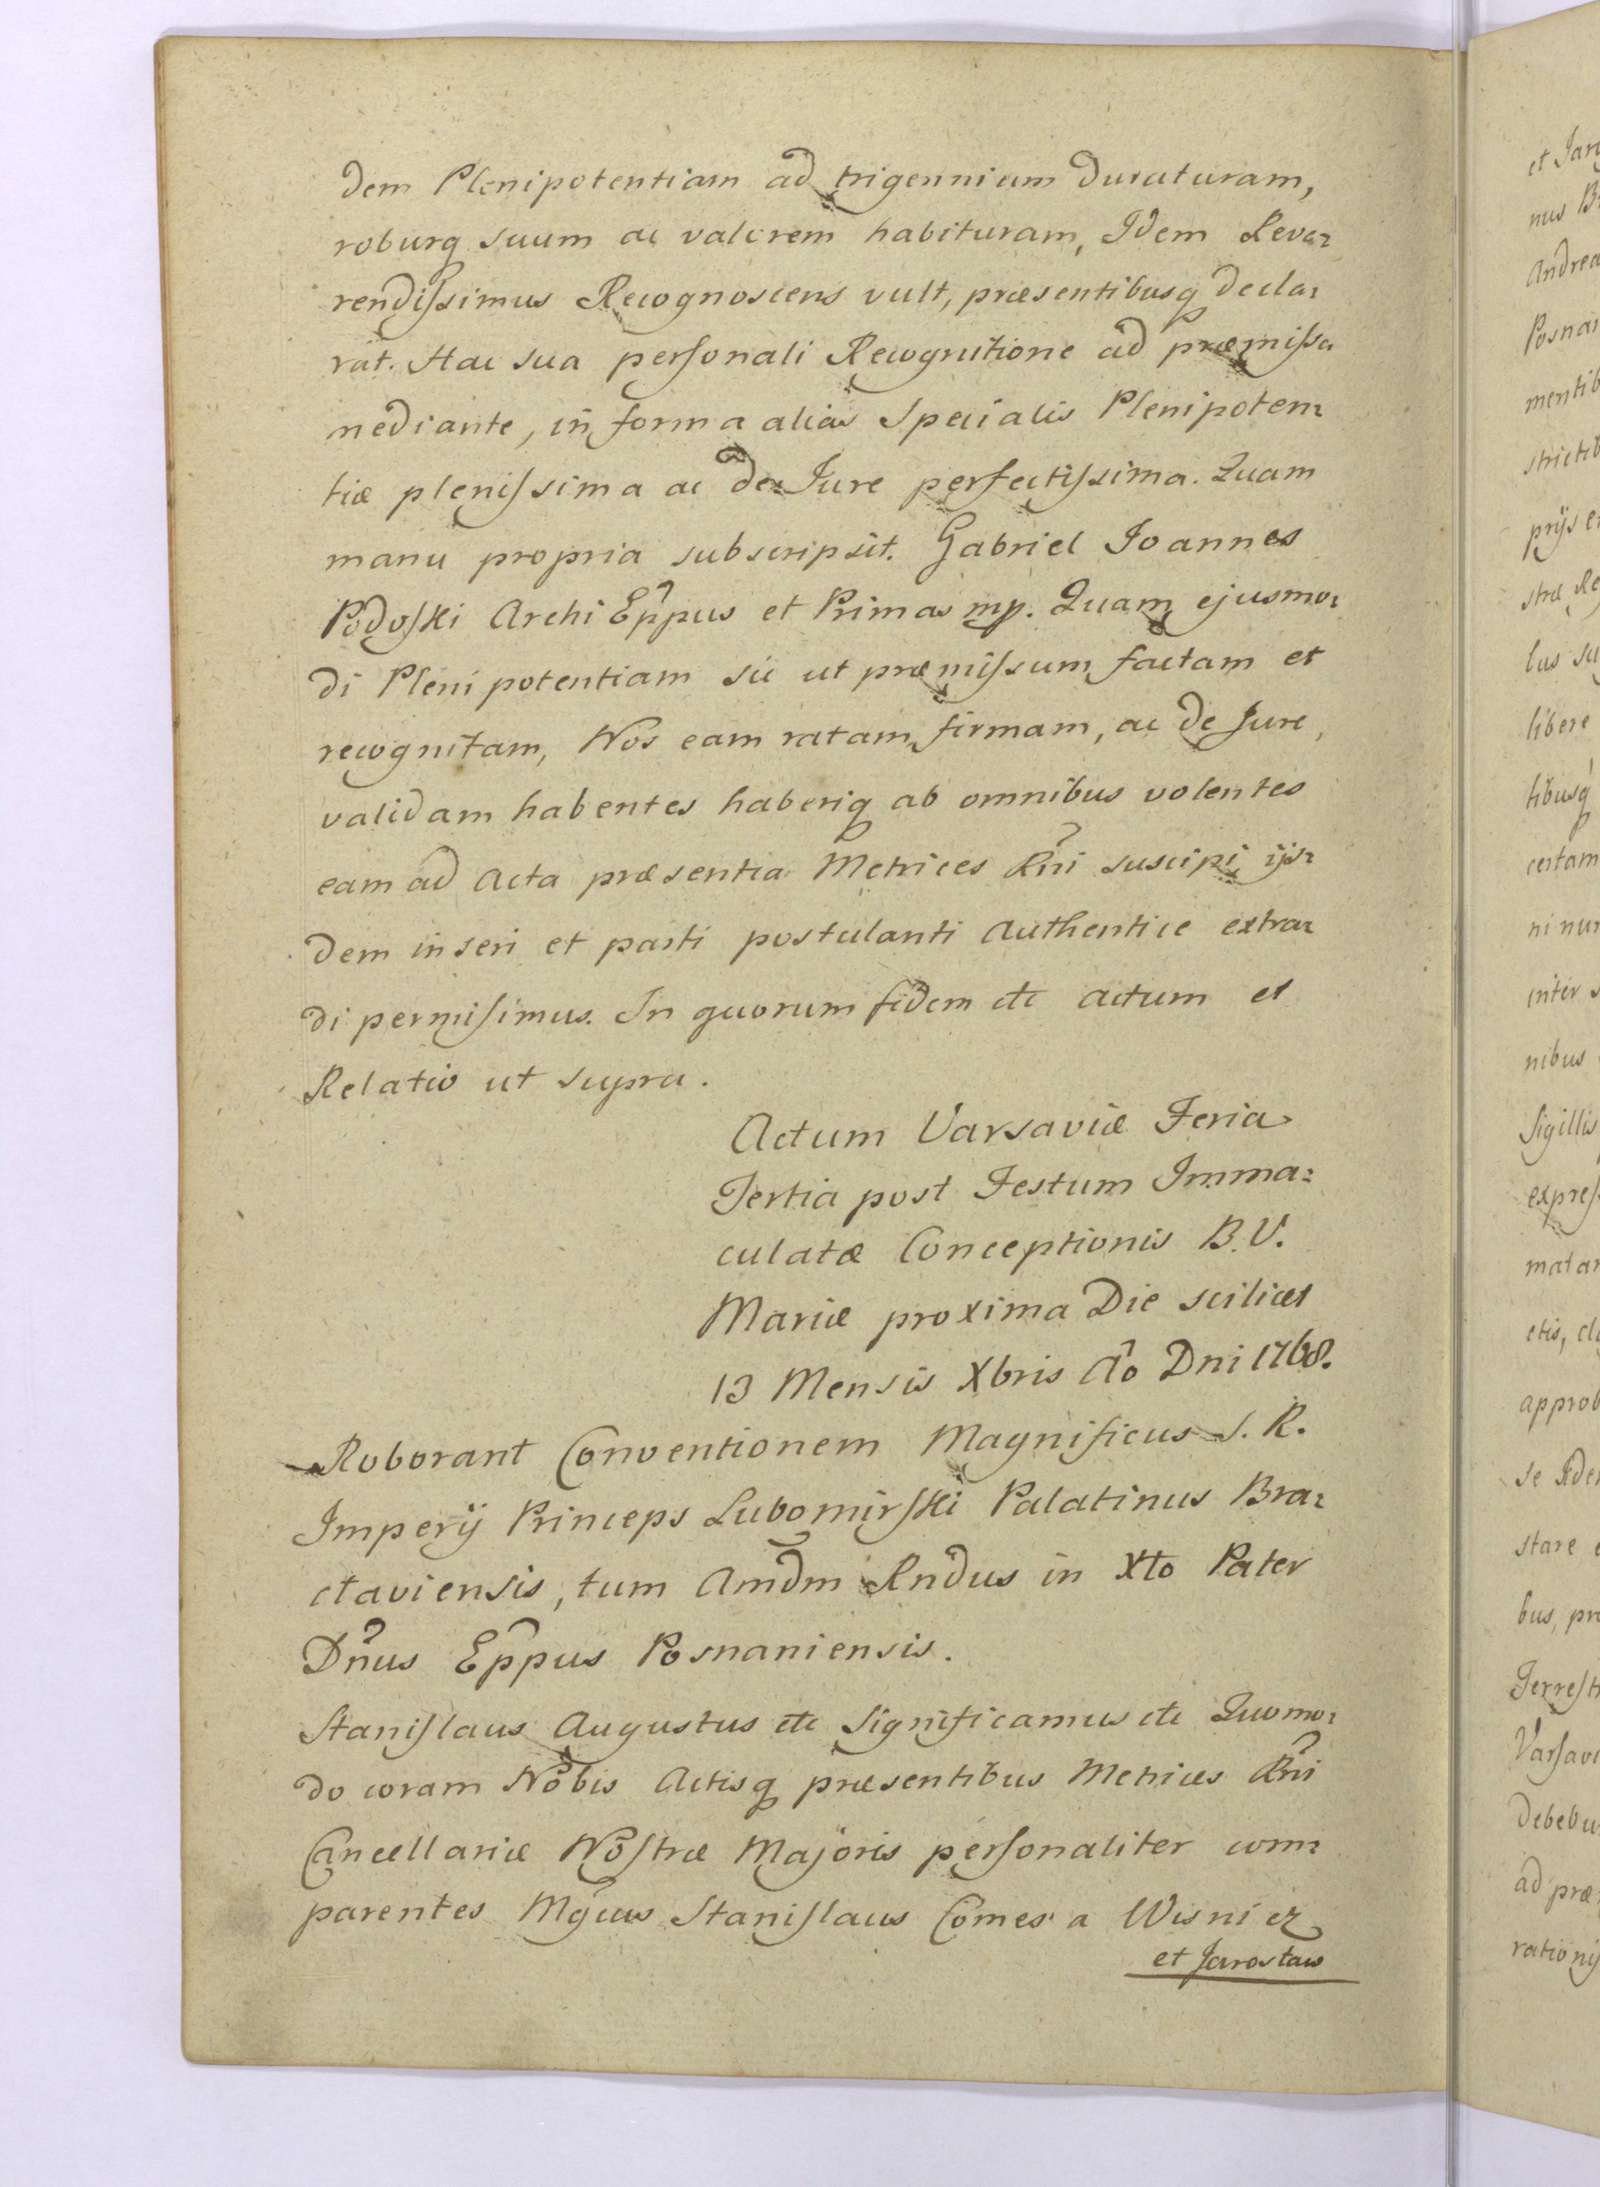 dem Plenipotentiam ad trigennium duraturam,
roburq suum ac valorem habituram, Idem Reve:
rendissimus Recognoscens vult, præsentibusq decla:
rat. Hac sua personali Recognitione ad præmissa
mediante, in forma alias Specialis Plenipoten:
tiæ plenissima ac de Jure perfectissima. Quam
manu propria subscripsit. Gabriel Joannes
Podoski Archi Eppus et Primas mp. Quam ejusmo:
di Plenipotentiam sic ut præmissum factam et
recognitam, Nos eam ratam, firmam, ac de Jure,
validam habentes haberiq ab omnibus volentes
eam ad Acta præsentia Metrices Rni suscipi, ijs:
dem inseri et parti postulanti Authentice extra:
di permisimus. In quorum fidem etc Actum et
Relatio ut supra.
Actum Varsaviæ Feria
Tertia post Festum Imma:
culatæ Conceptionis B. V.
Mariæ proxima Die scilicet
13 Mensis Xbris Ao Dni 1768.
Roborant Conventionem Magnificus S. R.
Imperij Princeps Lubomirski Palatinus Bra:
claviensis, tum Amdm Rndus in Xto Pater
Dnus Eppus Posnaniensis.
Stanislaus Augustus etc Significamus etc Quomo:
do coram Nobis Actisq præsentibus Metrices Rni
Cancellariæ Nostræ Majoris personaliter com:
parentes Mgcus Stanislaus Comes a Wisnicz
et Jarosław
et Jar
nus Br
Andrea
Posnan
mentib
strictib
prijs e
stræ Re
lus su
libere
tibusq
certam
ni nu
inter s
nibus
Sigillis
expres
matar
etis, cl
approb
se Ade
stare e
bus, pr
Terrest
Varsavi
debebu
ad præ
rationi